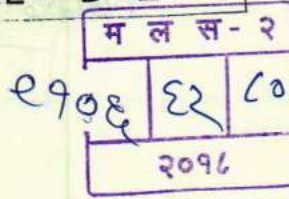 म ल स - २
९१०६ ६२ ८०
२०१८